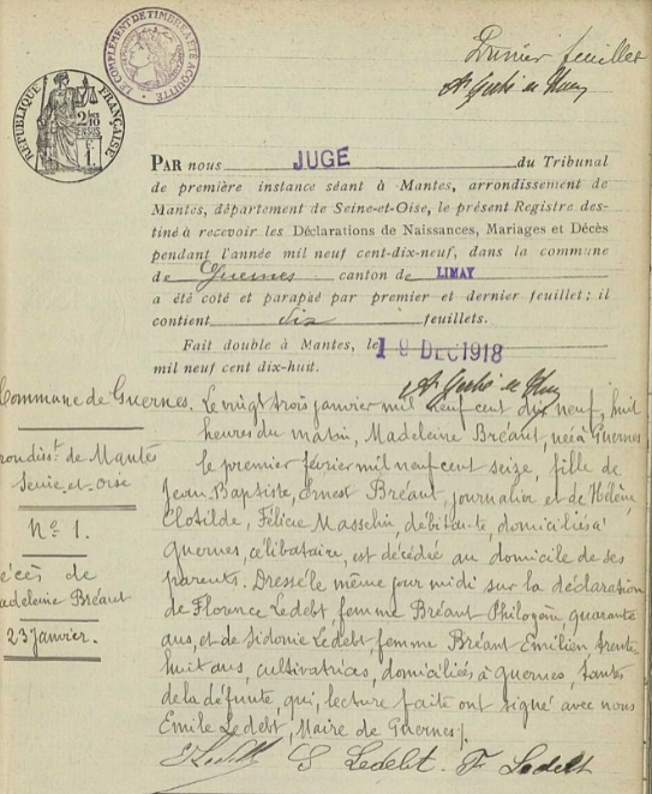 LE COMPLÉMENT DE TIMBRE A ÉTÉ ACQUITTÉ
RÉPUBLIQUE FRANÇAISE
feuillet
PAR nous JUGE du Tribunal
de première instance séant à Mantes, arrondissement de
Mantes, département de Seine-et-Oise, le présent Registre des-
tiné à recevoir les Déclarations de Naissances, Mariages et Décès
pendant l'année mil neuf cent-dix-neuf, dans la commune
de Guernes canton de LIMAY
a été coté et paraphé par premier et dernier feuillet; il
contient dix feuillets.
Fait double à Mantes, le 19 DEC 1918
mil neuf cent dix-huit.
Commune de Guernes.
rondisst. de Mantes
Seine-et-Oise
N° 1.
écès de
adeleine Bréant
23 Janvier.
Le vingt trois janvier mil neuf cent dix neuf, huit
heures du matin, Madeleine Bréant, née à Guernes
le premier février mil neuf cent seize, fille de
Jean-Baptiste, Ernest Bréant, journalier et de Hélène
Clotilde, Félicie Masselin, débitante, domiciliés à
Guernes, célibataire, est décédée au domicile de ses
parents. Dressé le même jour midi sur la déclaration
de Florence Ledebt, femme Bréant Philogène, quarante
ans, et de Sidonie Ledebt, femme Bréant Emilien, trente-
huit ans, cultivatrices, domiciliées à Guernes, tantes
de la défunte, qui, lecture faite ont signé avec nous
Emile Ledebt, Maire de Guernes /.
E Ledebt S Ledebt. F. Ledebt